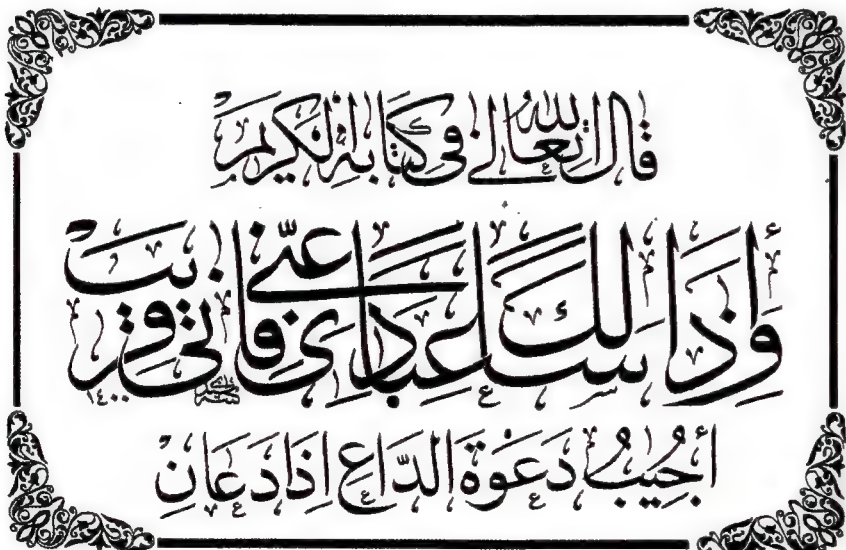 قال الله تعالى في كتابه الكريم
وَإِذَا سَأَلَكَ عِبَادِي عَنِّي فَإِنِّي قَرِيبٌ
١٤٠٠
أُجِيبُ دَعْوَةَ الدَّاعِ إِذَا دَعَانِ